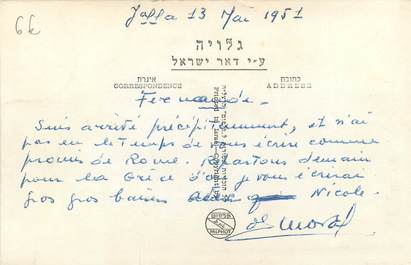 6k
Jaffa 13 Mai 1951
גלויה
ע״י דאר ישראל
אגרת כתובת
CORRESPONDENCE ADDRESS
Fernande.
Suis arrivé précipitamment, et n'ai
pas eu le temps de vous écrire comme
promis de Rome. Repartons demain
pour la Grèce d'où je vous écrirai
gros gros baisers Nicole.
PALPHOT